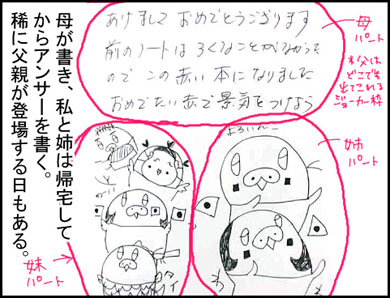 母が書き、私と姉は帰宅して
からアンサーを書く。
稀に父親が登場する日もある。
あけまして おめでとうござります
前のノートは ろくなことがなかった
ので この赤い本になりました
おめでたい赤で景気をつけよう
母
パート
※父は
どこでも
出てこれる
ジョーカー枠
姉
パート
妹
パート